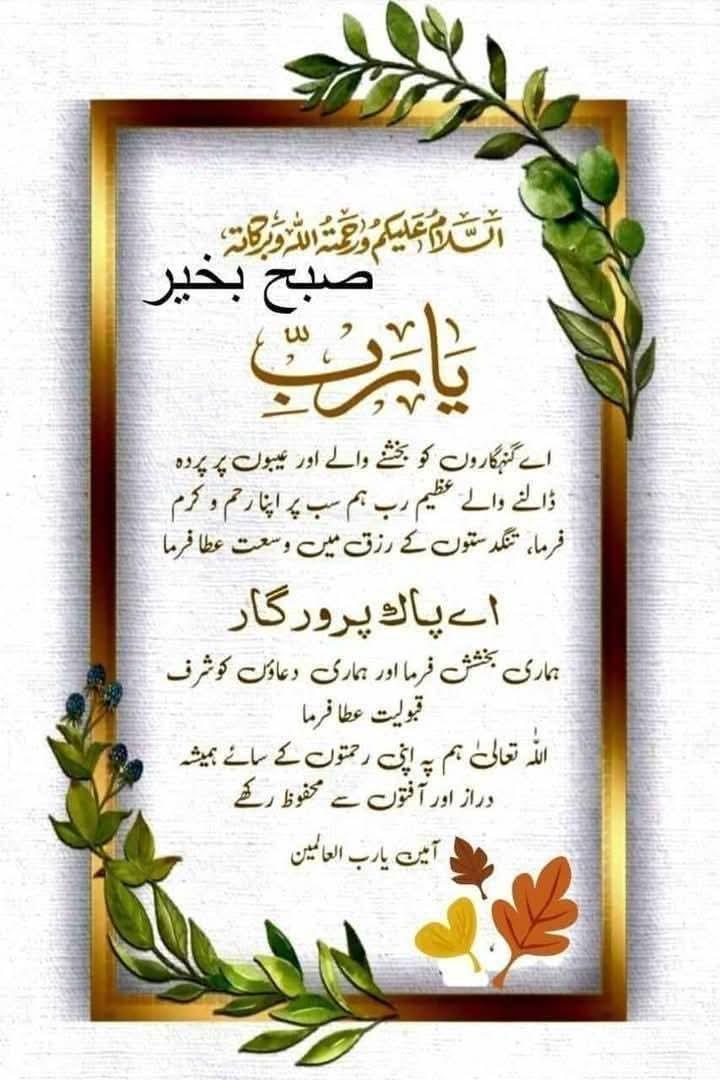 اَلسَّلَامُ عَلَيْكُمْ وَرَحْمَةُ اللهِ وَبَرَكَاتُهُ
صبح بخیر
یَا رَبِّ
اے گنہگاروں کو بخشنے والے اور عیبوں پر پردہ
ڈالنے والے عظیم رب ہم سب پر اپنا رحم و کرم
فرما، تنگدستوں کے رزق میں وسعت عطا فرما
اے پاک پرورگار
ہماری بخشش فرما اور ہماری دعاؤں کو شرف
قبولیت عطا فرما
اللہ تعالیٰ ہم پہ اپنی رحمتوں کے سائے ہمیشہ
دراز اور آفتوں سے محفوظ رکھے
آمین یارب العالمین